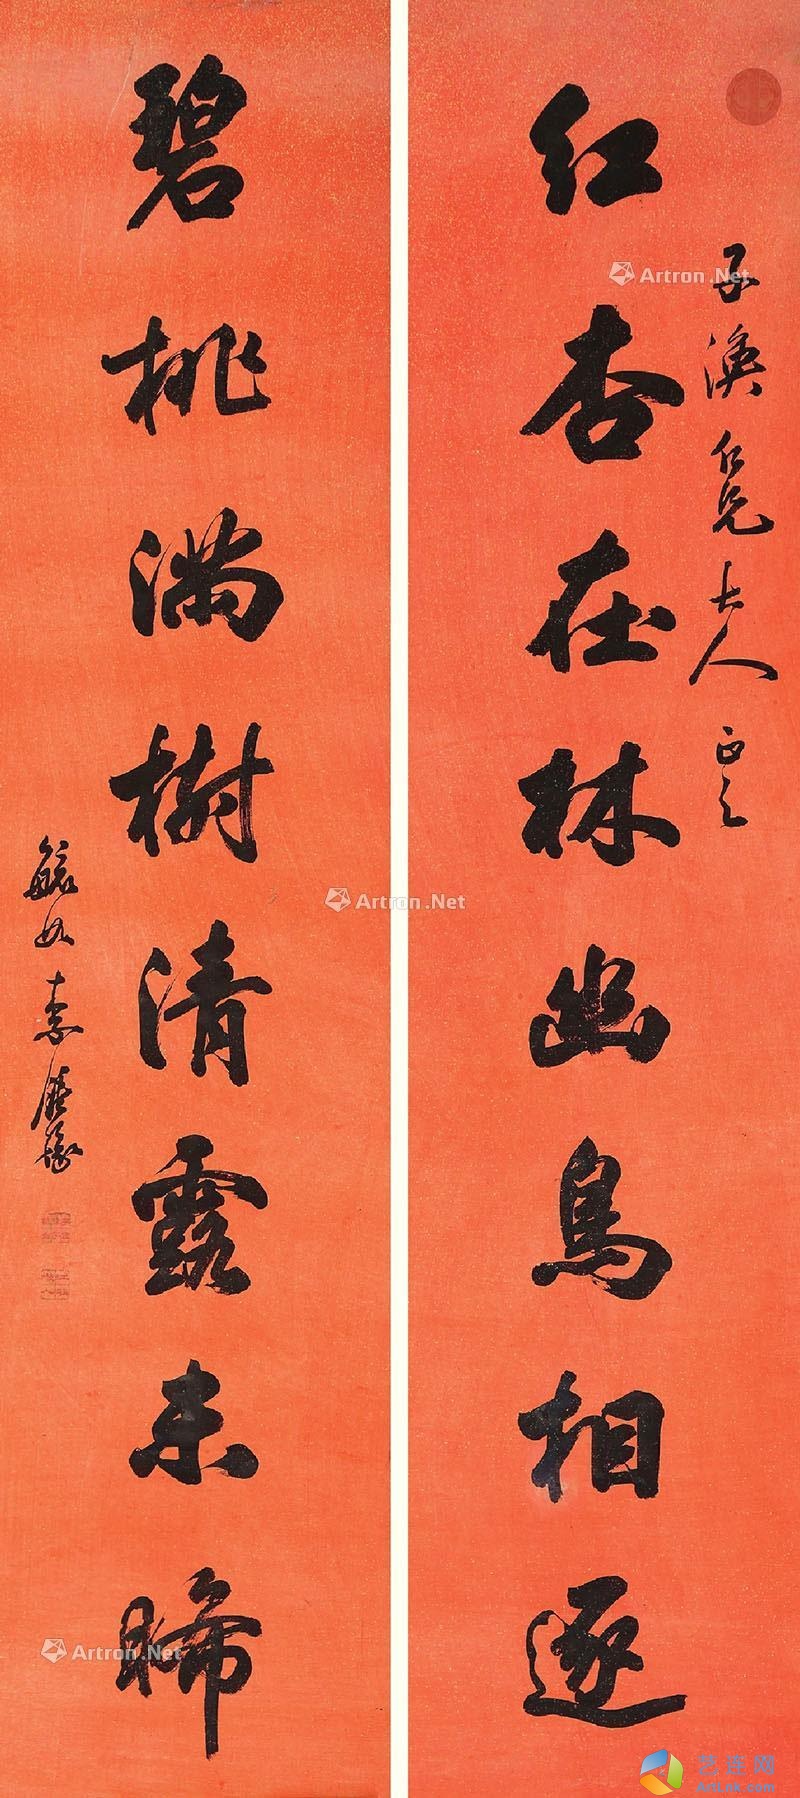 子渙仁兄大人正之
红杏在林幽鳥相逐
碧桃滿樹清露未晞
毓如
Artron.Net
Artron.Net
Artron.Net
艺连网
ArtLnk.com